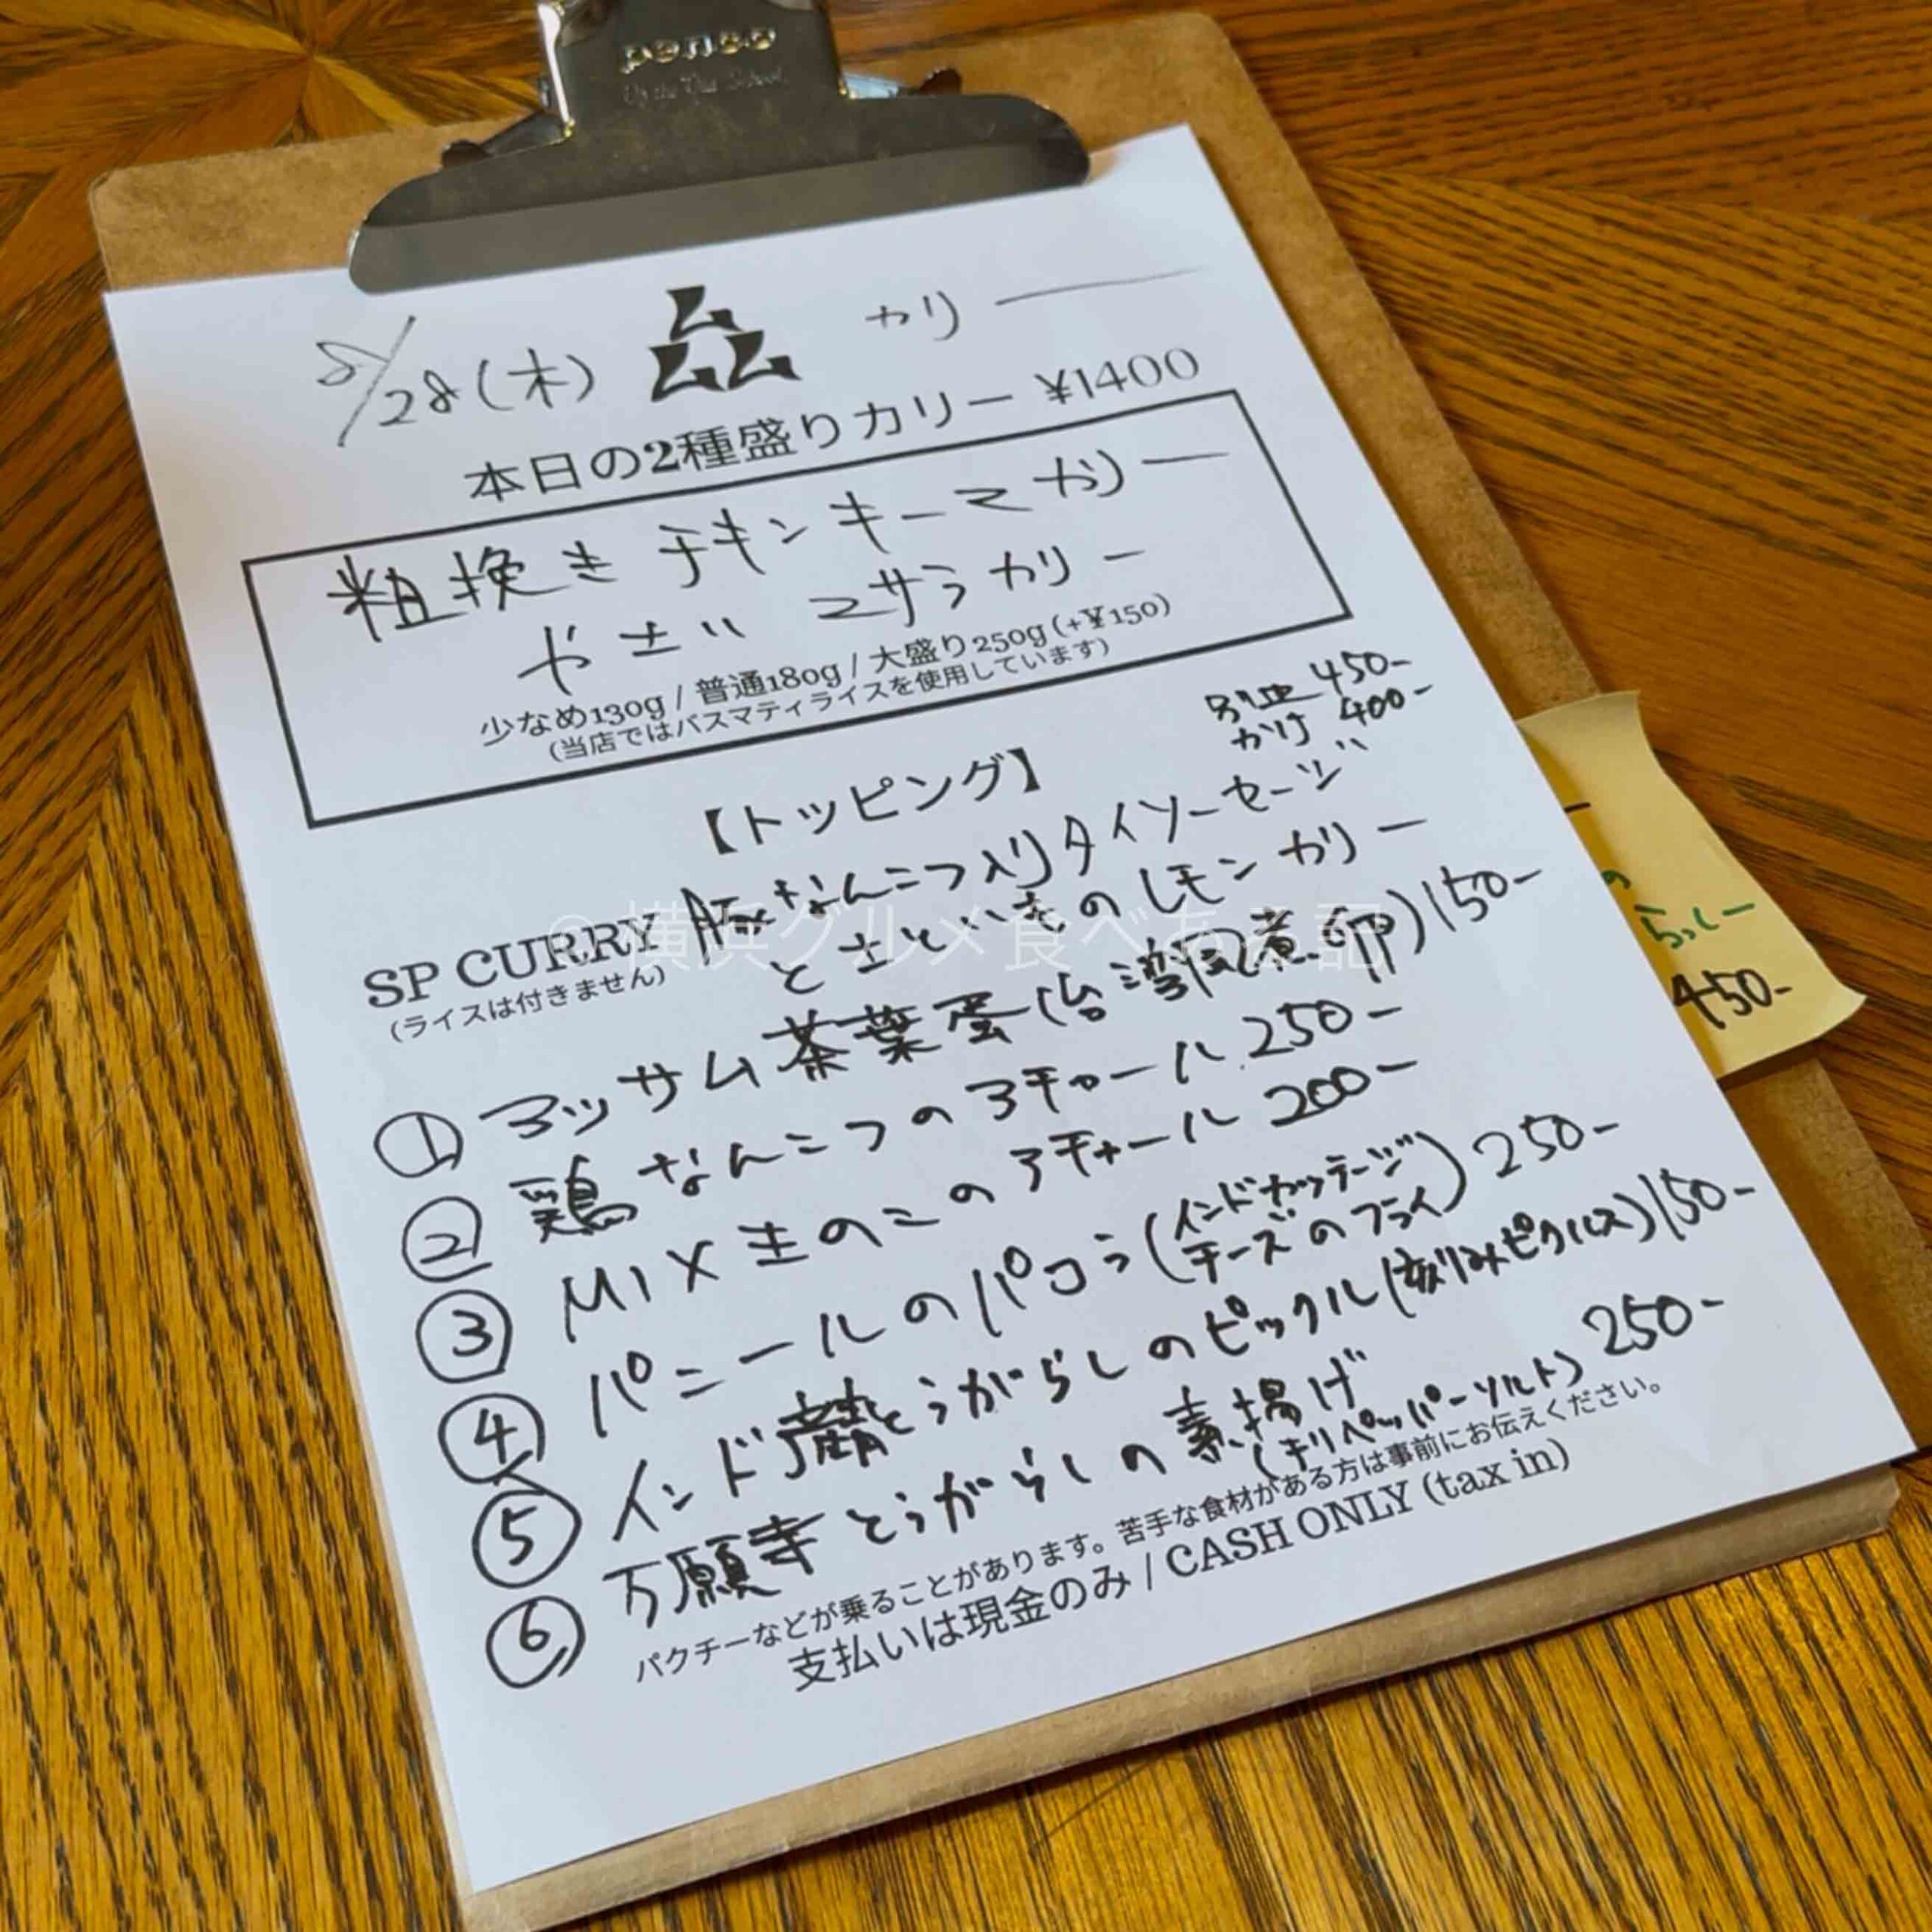 penco
8/28(木)
ムムム
カリー
本日の2種盛りカリー ¥1400
粗挽きチキンキーマカリー
やさい マサラカリー
少なめ130g / 普通180g / 大盛り250g (+¥150)
(当店ではバスマティライスを使用しています)
別皿 450-
かけ 400-
【トッピング】
SP CURRY
(ライスは付きません)
豚なんこつ入りタイソーセージ
とさといものレモンカリー
① アッサム茶葉蛋(台湾風煮卵)150-
② 鶏なんこつのアチャール 250-
③ MIX きのこのアチャール 200-
④ パニールのパコラ(インドカッテージチーズのフライ)250-
⑤ インド産青とうがらしのピックル(刻みピクルス)150-
⑥ 万願寺とうがらしの素揚げ
(キリペッパーソルト) 250-
パクチーなどが乗ることがあります。苦手な食材がある方は事前にお伝えください。
支払いは現金のみ / CASH ONLY (tax in)
の
らっしー
450-
©横浜グルメ食べある記